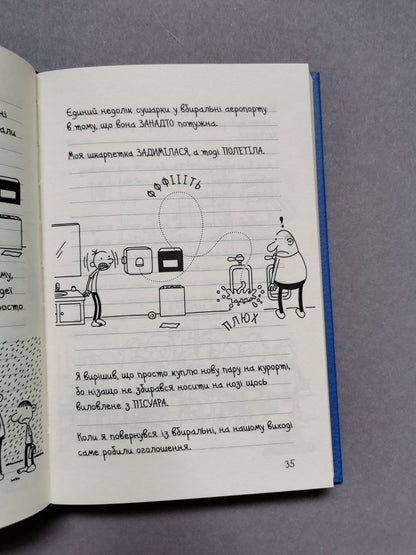 Єдиний недолік сушарки у вбиральні аеропорту
в тому, що вона ЗАНАДТО потужна.
Моя шкарпетка ЗАДИМІЛАСЯ, а тоді ПОЛЕТІЛА.
ФФФІІІТЬ
!
ПЛЮХ
Я вирішив, що просто куплю нову пару на курорті,
бо нізащо не збирався носити на нозі щось
виловлене з ПІСУАРА.
Коли я повернувся із вбиральні, на нашому виході
саме робили оголошення.
35